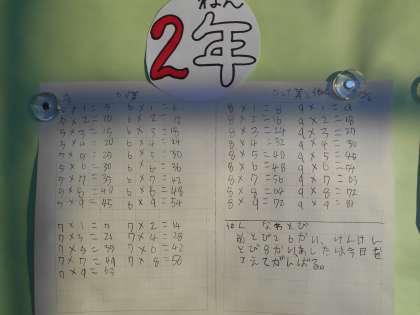 ねん
2年
5×1=5 6×1=6
5×2=10 6×2=12
5×3=15 6×3=18
5×4=20 6×4=24
5×5=25 6×5=30
5×6=30 6×6=36
5×7=35 6×7=42
5×8=40 6×8=48
5×9=45 6×9=54
7×1=7 7×2=14
7×3=21 7×4=28
7×5=35 7×6=42
7×7=49 7×8=56
7×9=63
8×1=8 9×1=9
8×2=16 9×2=18
8×3=24 9×3=27
8×4=32 9×4=36
8×5=40 9×5=45
8×6=48 9×6=54
8×7=56 9×7=63
8×8=64 9×8=72
8×9=72 9×9=81
なわとび
前とび26かい、けんけん
とび8かいあしたは今日を
こえてがんばる。